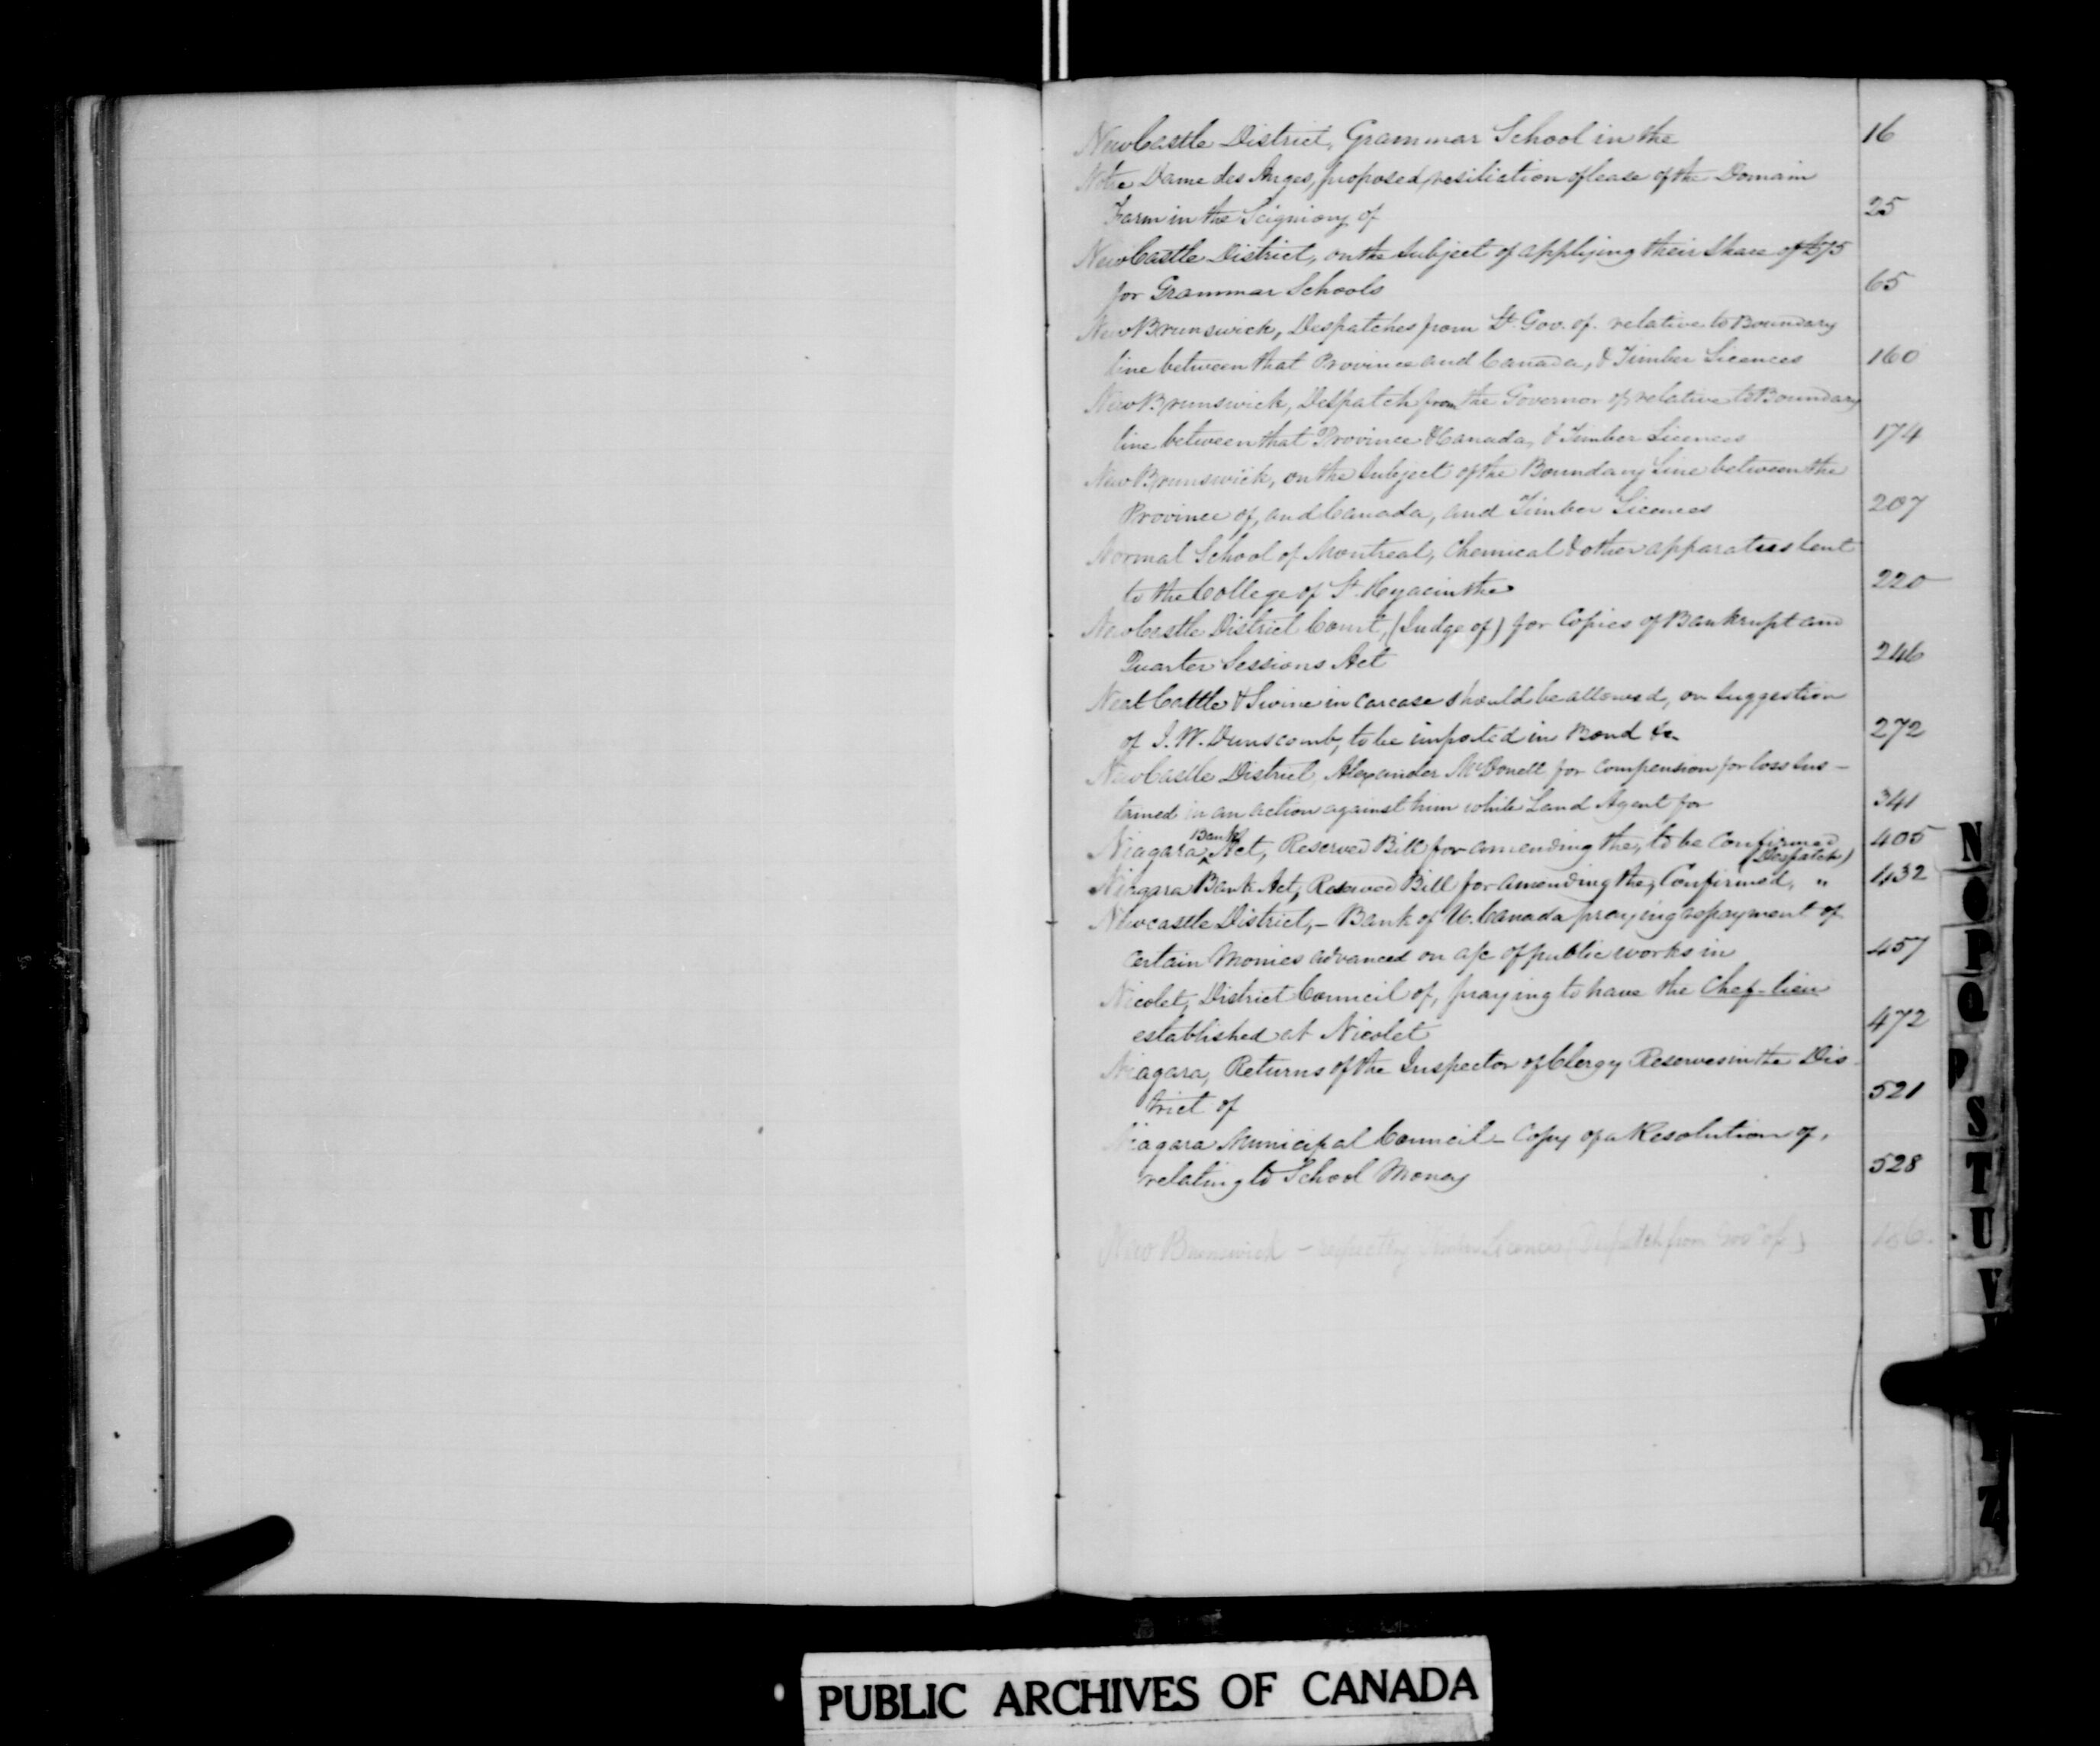 NewCastle District, Grammar School in the 16
Notre Dame des Anges, proposed resiliation of lease of the Domain
Farm in the Seigniory of 25
NewCastle District, on the Subject of applying their Share of £275
for Grammar Schools 65
New Brunswick, Despatches from Lt. Gov. of. relative to Boundary
line between that Province and Canada, & Timber Licences 160
New Brunswick, Despatch from the Governor of relative to Boundary
line between that Province & Canada, & Timber Licences 174
New Brunswick, on the Subject of the Boundary Line between the
Province of, and Canada, and Timber Licences 207
Normal School of Montreal, Chemical & other apparatus lent
to the College of St. Hyacinthe 220
NewCastle District Court, (Judge of) for Copies of Bankrupt and
Quarter Sessions Act 246
Neat Cattle & Swine in Carcase should be allowed, on Suggestion
of J. W. Dunscomb, to be imported in Bond &c. 272
NewCastle District, Alexander McDonell for Compension for loss sus-
tained in an action against him while Land Agent for 341
Niagara Bank Act, Reserved Bill for amending the, to be Confirmed 405
(Despatch)
Niagara Bank Act, Reserved Bill for amending the, Confirmed, " 432
Newcastle District, - Bank of U. Canada praying repayment of
Certain Monies advanced on a/c of public works in 457
Nicolet, District Council of, praying to have the Chef-lieu
established at Nicolet 472
Niagara, Returns of the Inspector of Clergy Reserves in the Dis-
trict of 521
Niagara Municipal Council - Copy of a Resolution of,
relating to School Money 528
New Brunswick - respecting Timber Licences (Despatch from Govr of) 186.
N
O
P
Q
S
T
U
V
Z
PUBLIC ARCHIVES OF CANADA